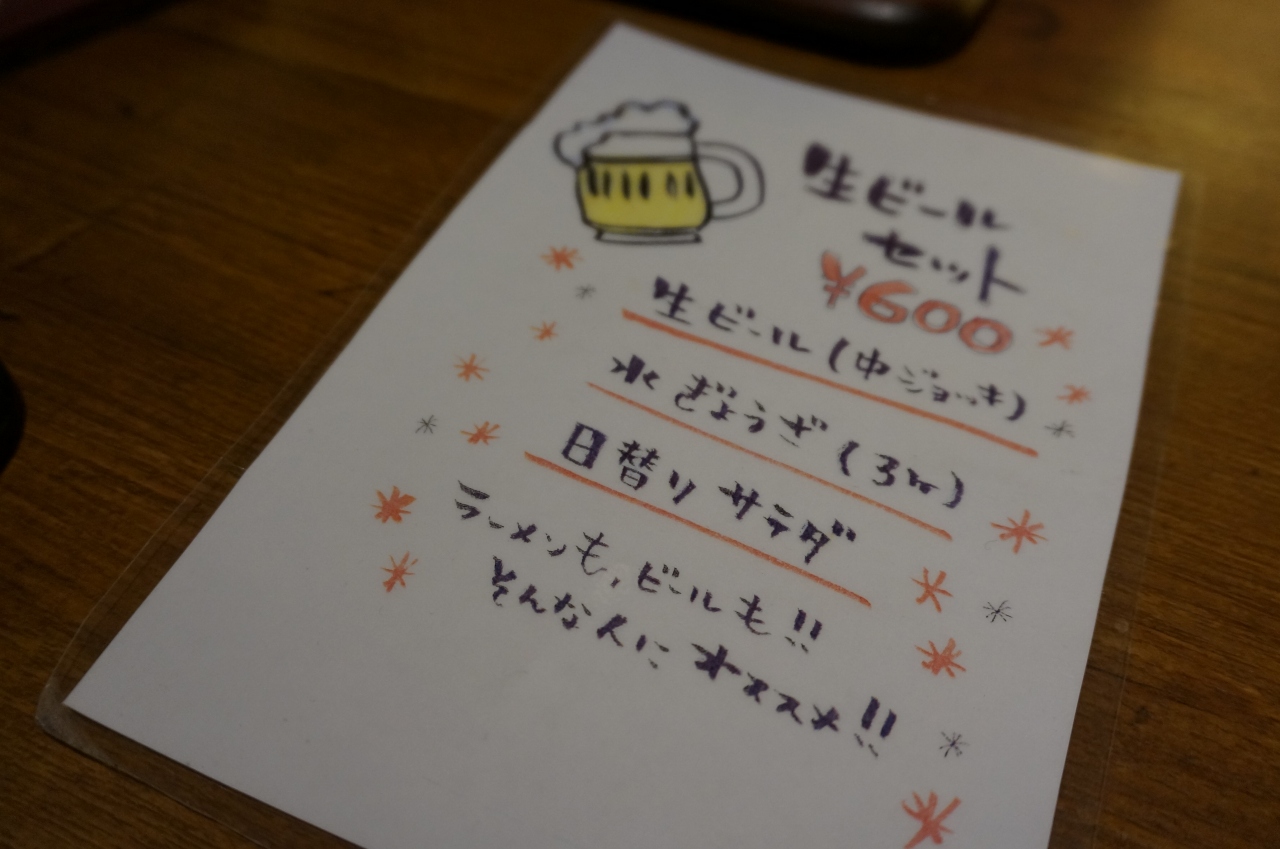 生ビール
セット
¥600
生ビール(中ジョッキ)
水ぎょうざ(3ヶ)
日替りサラダ
ラーメンも,ビールも!!
そんな人にオススメ!!